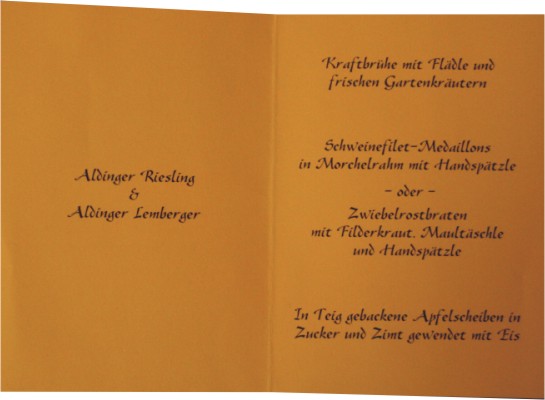 Aldinger Riesling
&
Aldinger Lemberger
Kraftbrühe mit Flädle und
frischen Gartenkräutern
Schweinefilet-Medaillons
in Morchelrahm mit Handspätzle
- oder -
Zwiebelrostbraten
mit Filderkraut, Maultäschle
und Handspätzle
In Teig gebackene Apfelscheiben in
Zucker und Zimt gewendet mit Eis